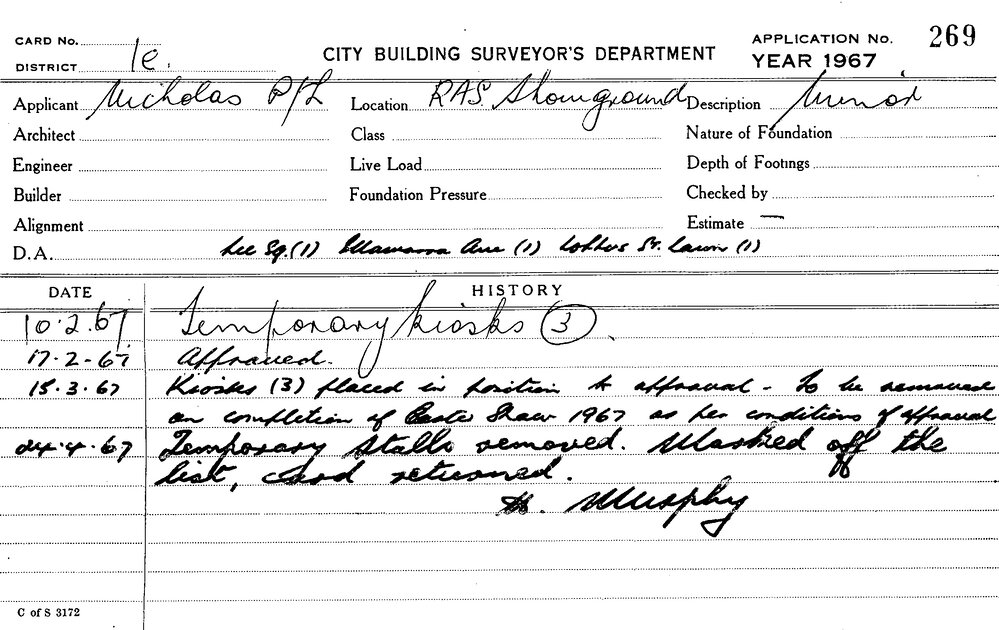 CARD No.
DISTRICT 1e.
CITY BUILDING SURVEYOR'S DEPARTMENT
APPLICATION No. 269
YEAR 1967
Applicant Nicholas P/L Location RAS Showground Description Minor
Architect Class Nature of Foundation
Engineer Live Load Depth of Footings
Builder Foundation Pressure Checked by
Alignment Estimate —
D.A. Lee Sq.(1) Illawarra Ave (1) Loftus St. Lawn (1)
DATE HISTORY
10.2.67 Temporary kiosks (3).
17.2-67 Approved.
15.3.67 Kiosks (3) placed in position to approval - To be removed
on completion of Easter Show 1967 as per conditions of approval
24.4.67 Temporary stalls removed. Marked off the
list, card returned.
Murphy
C of S 3172